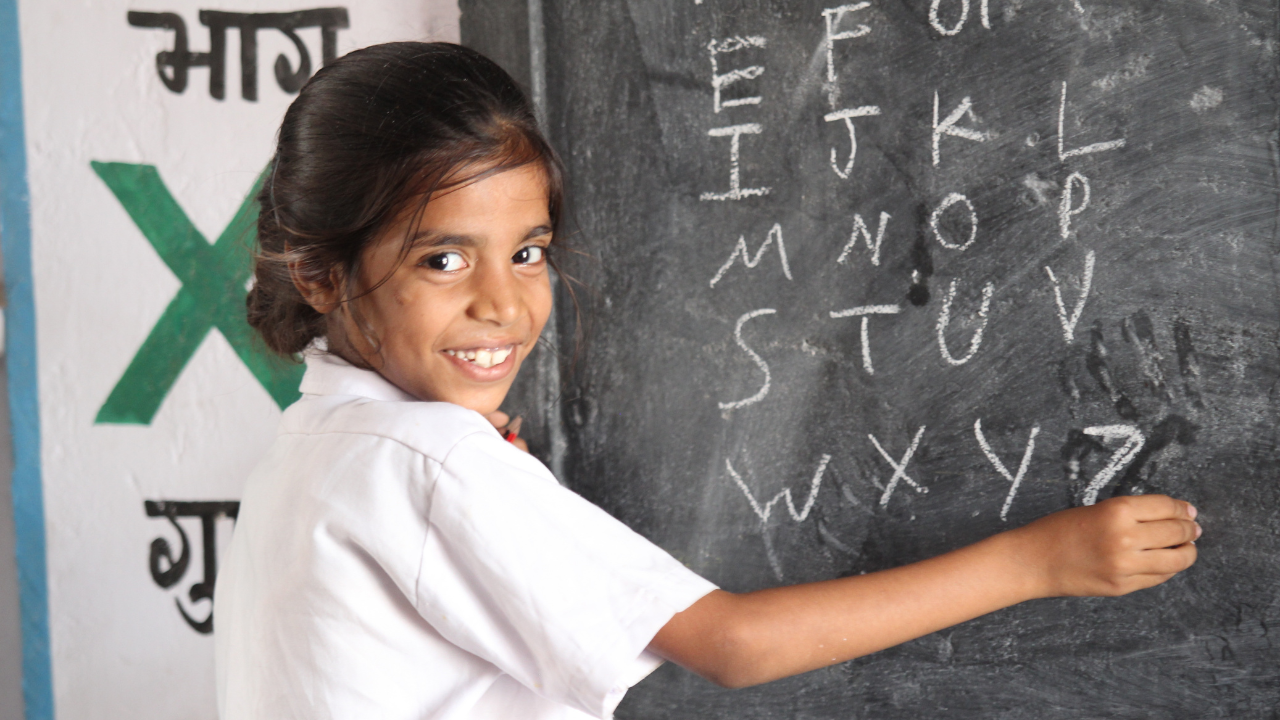 भाग
X
E F
I J K L
M N O P
S T U V
W X Y